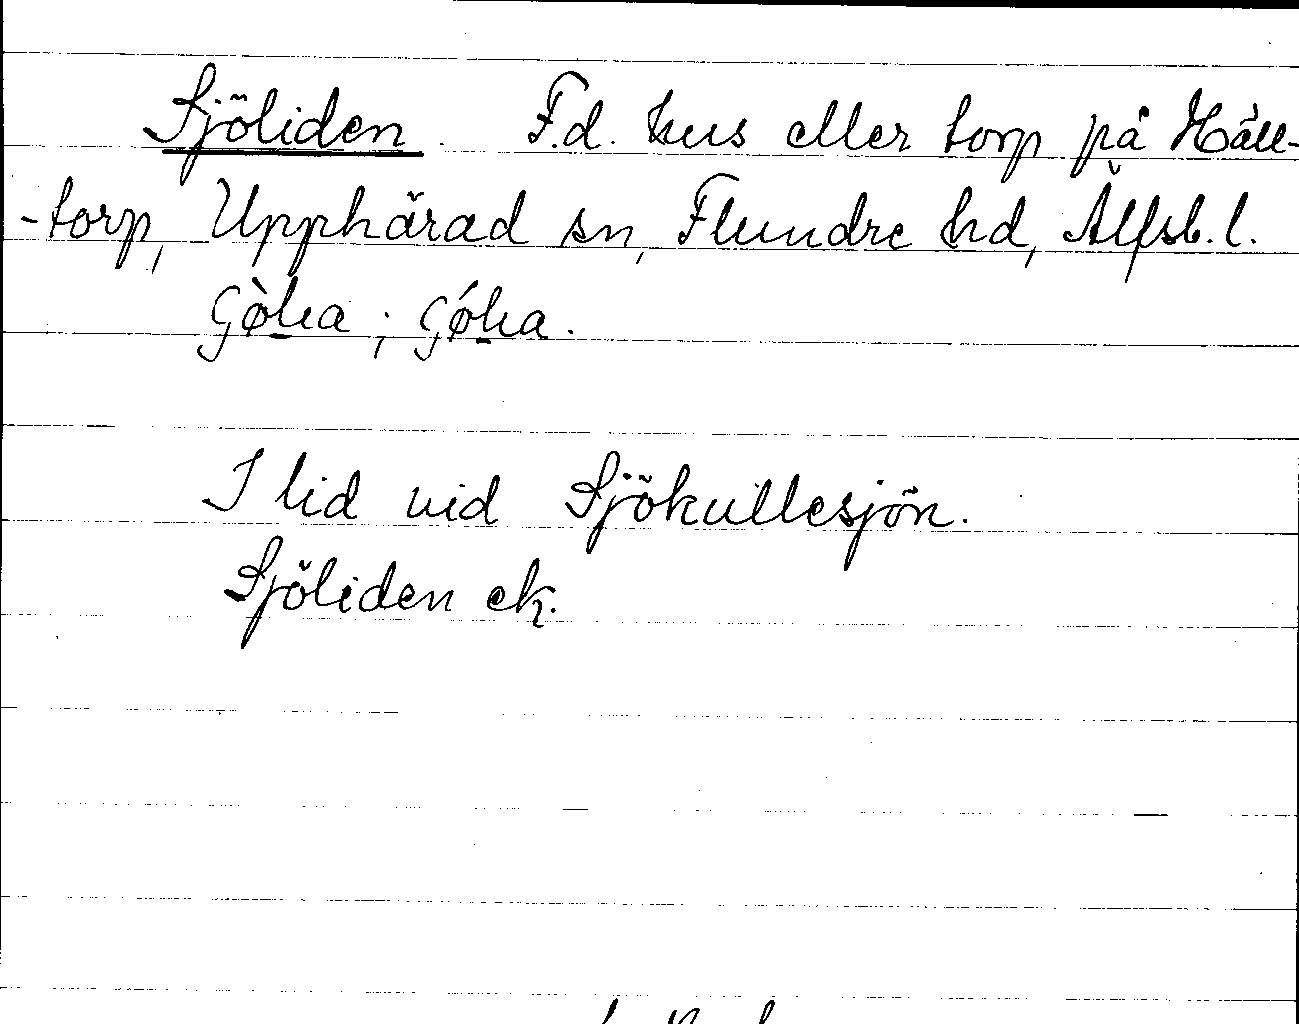 Sjöliden. F.d. hus eller torp på Häll-
-torp, Upphärad sn, Flundre hd, Älfsb. l.
I lid vid Sjökullesjön.
Sjöliden ek.